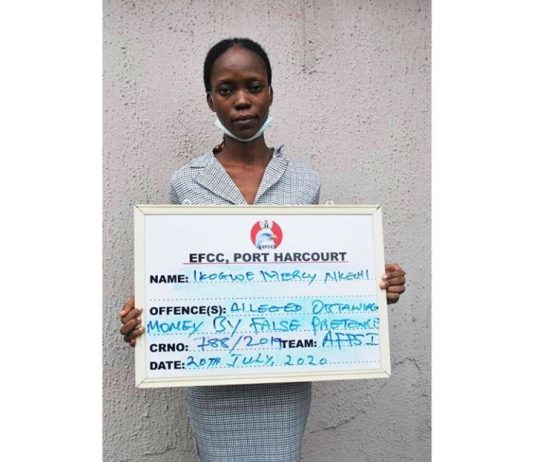 EFCC
EFCC, PORT HARCOURT
NAME: IKOGWE MERCY NKECHI
OFFENCE(S): ALLEGED OBTAINING
MONEY BY FALSE PRETENCE
CRNO: 788/2019 TEAM: AFFS I
DATE: 20TH JULY, 2020